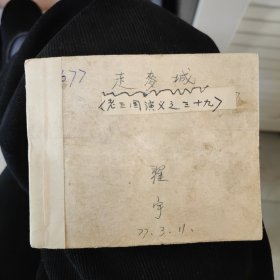 677 走麦城
〈老三国演义之三十九〉
翟
宇
77.3.11.